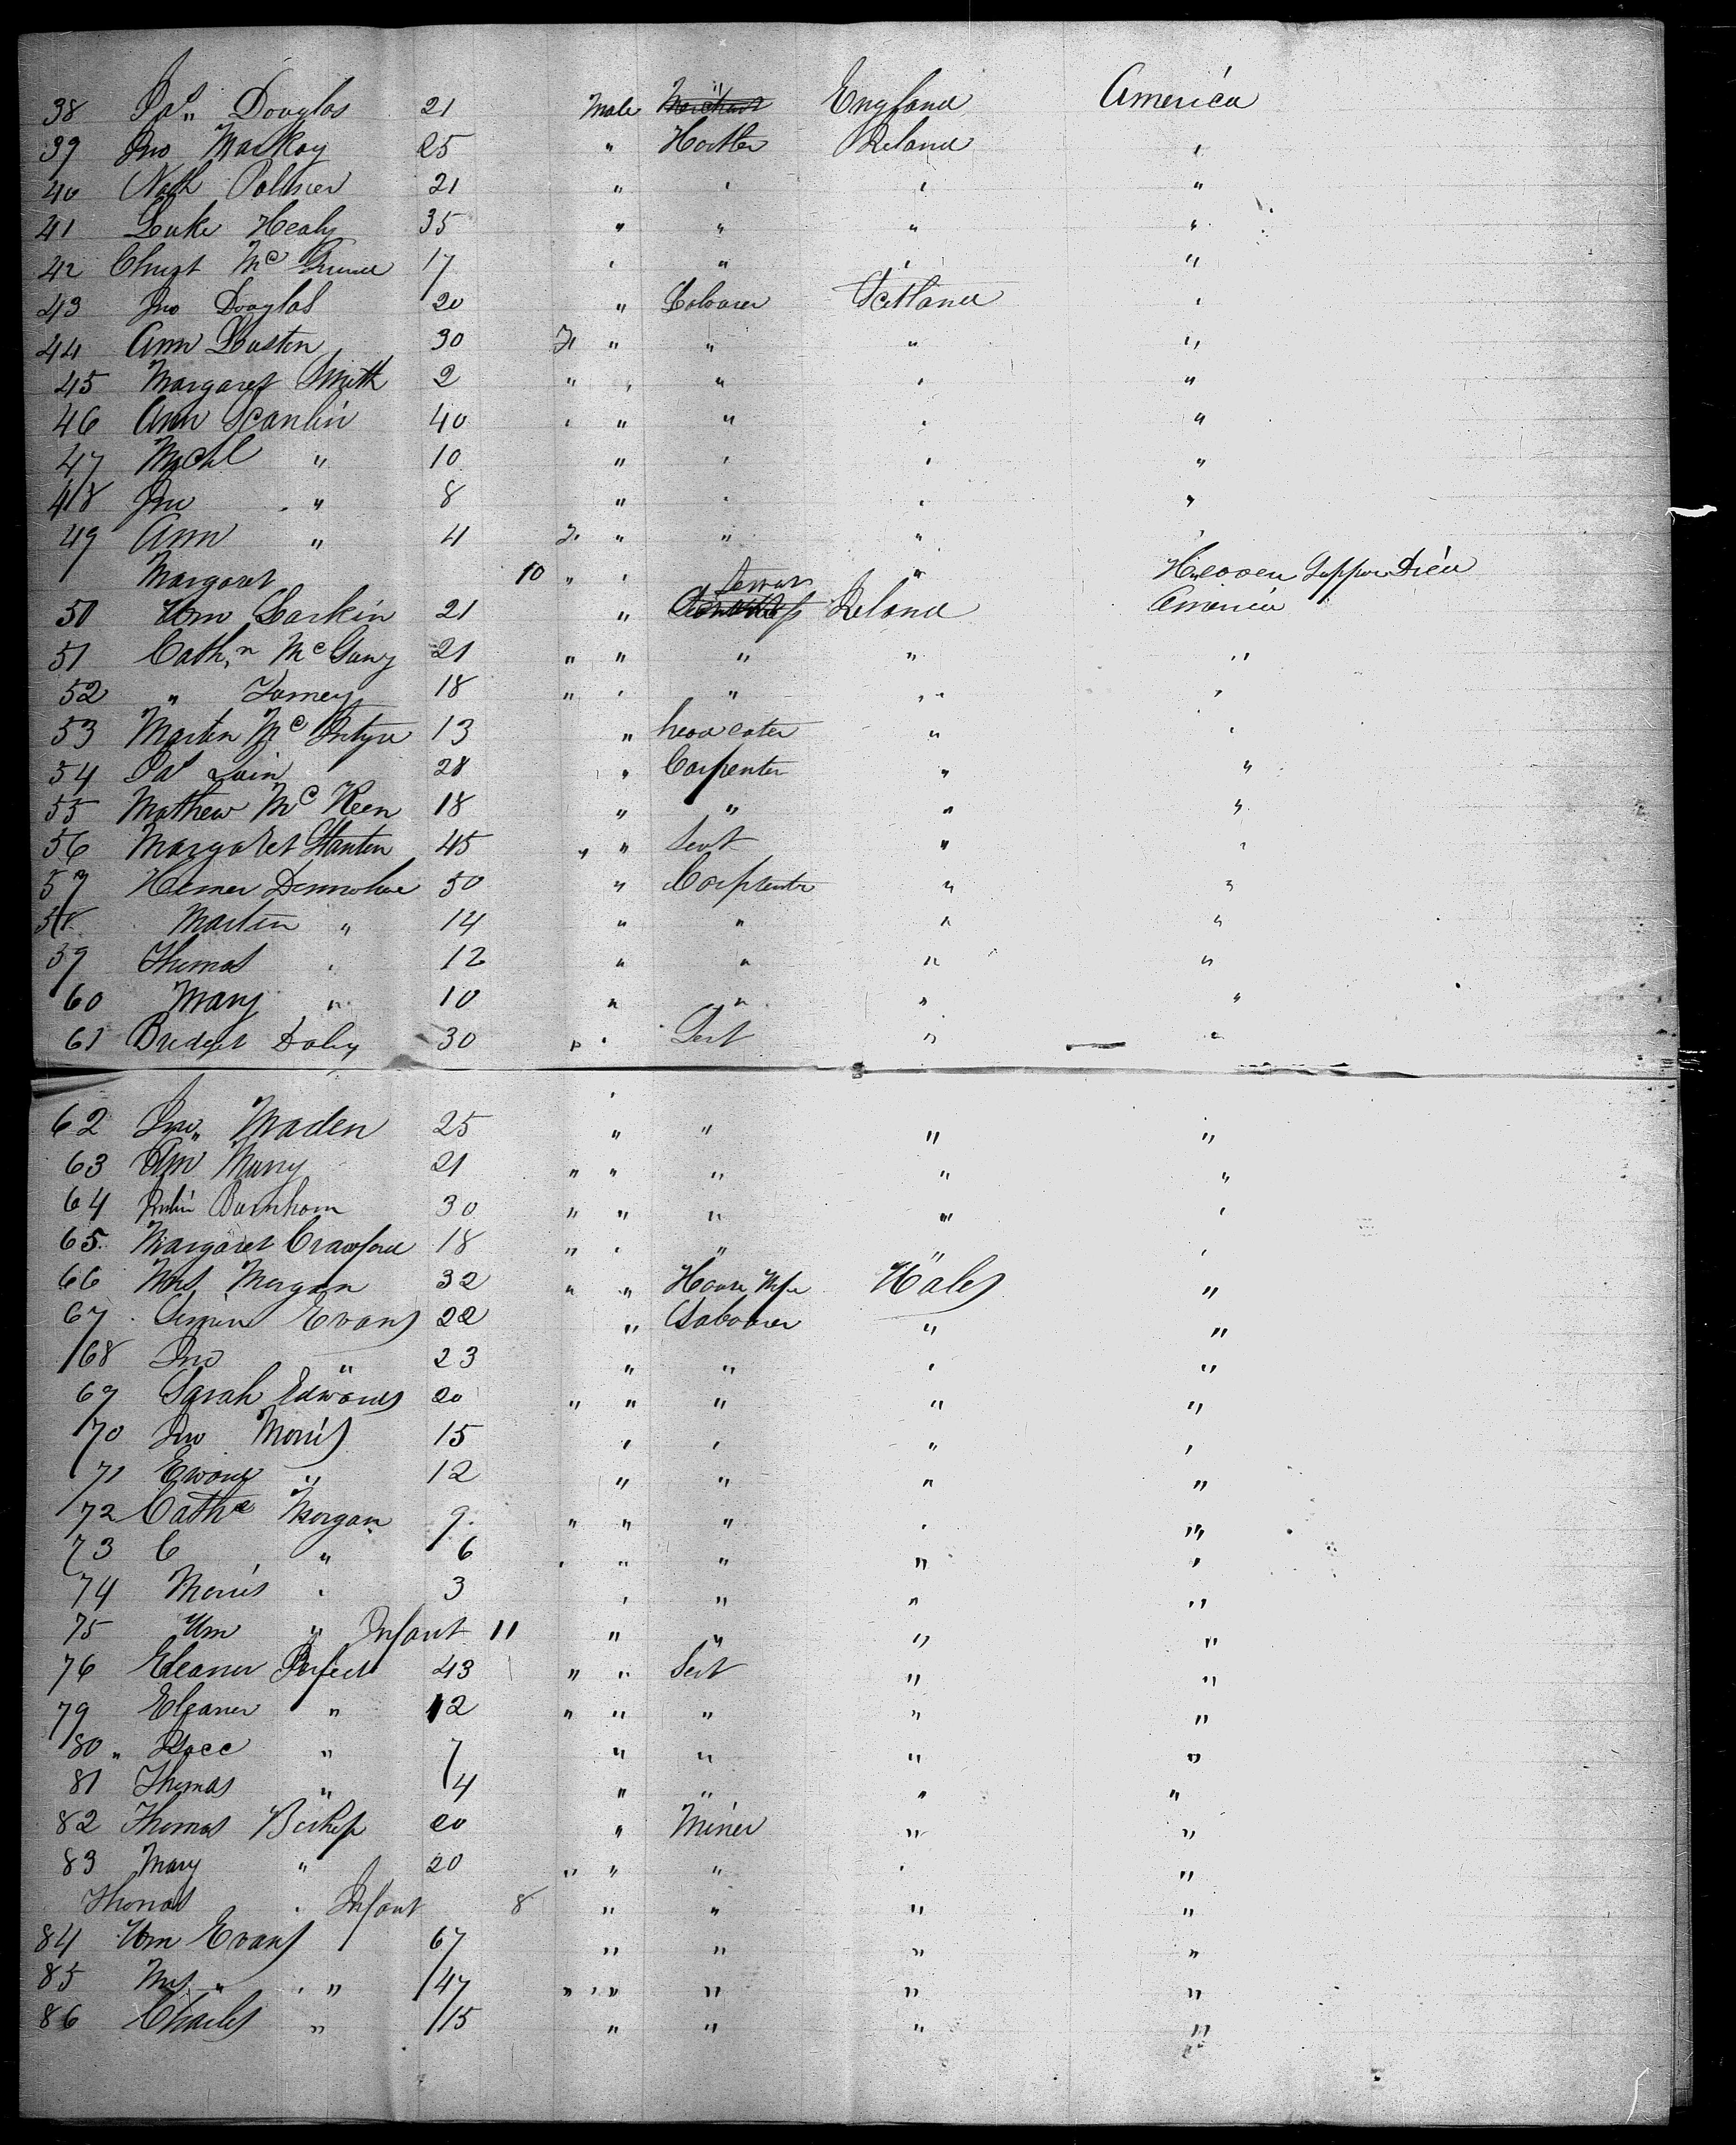 38 Pat Douglas 21 Male " England America
39 Jno Mackay 25 " Hostler Ireland "
40 Nath Palmer 21 " " " "
41 Luke Healy 35 " " " "
42 Christ Mc 17 " " " "
43 Jno Douglas 20 " Labourer Scotland "
44 Ann 30 F " " " "
45 Margaret Smith 2 " " " " "
46 Ann Scanlin 40 " " " " "
47 Michl " 10 " " " "
48 Jno " 8 " " " "
49 Ann " 4 F " " " "
Margaret 10 " " " Heaven Suppose Died
50 Wm Larkin 21 " Ireland America
51 Cathn Mc 21 " " " " "
52 " 18 " " " " "
53 Martin Mc Intyre 13 " " "
54 Pat 28 " Carpenter " "
55 Mathew Mc Keen 18 " " " "
56 Margaret Stanton 45 " " Sevt " "
57 Donnohue 50 " Carpenter " "
58 Martin " 14 " " " "
59 Thomas " 12 " " " "
60 Mary " 10 " " " "
61 Bridget Daley 30 " " Sevt " "
62 Jno Maden 25 " " " "
63 Ann 21 " " " " "
64 Burnham 30 " " " " "
65 Margaret Crawford 18 " " " " "
66 Mrs Morgan 32 " " House Wfe Wales "
67 Evans 22 " Labourer " "
68 Jno " 23 " " " "
69 Sarah Edwards 20 " " " " "
70 Jno Morris 15 " " " "
71 " 12 " " " "
72 Cathe Morgan 9 " " " " "
73 C " 6 " " " " "
74 Morris " 3 " " " "
75 Wm " Infant 11 " " " "
76 Eleanor Perfect 43 " " Sevt " "
79 Eleanor " 12 " " " " "
80 " " 7 " " " "
81 Thomas " 4 " " " "
82 Thomas Bishop 20 " Miner " "
83 Mary " 20 " " " " "
Thomas " Infant 8 " " " "
84 Wm Evans 67 " " " "
85 Mrs " " 47 " " " " "
86 Charles " 15 " " " "